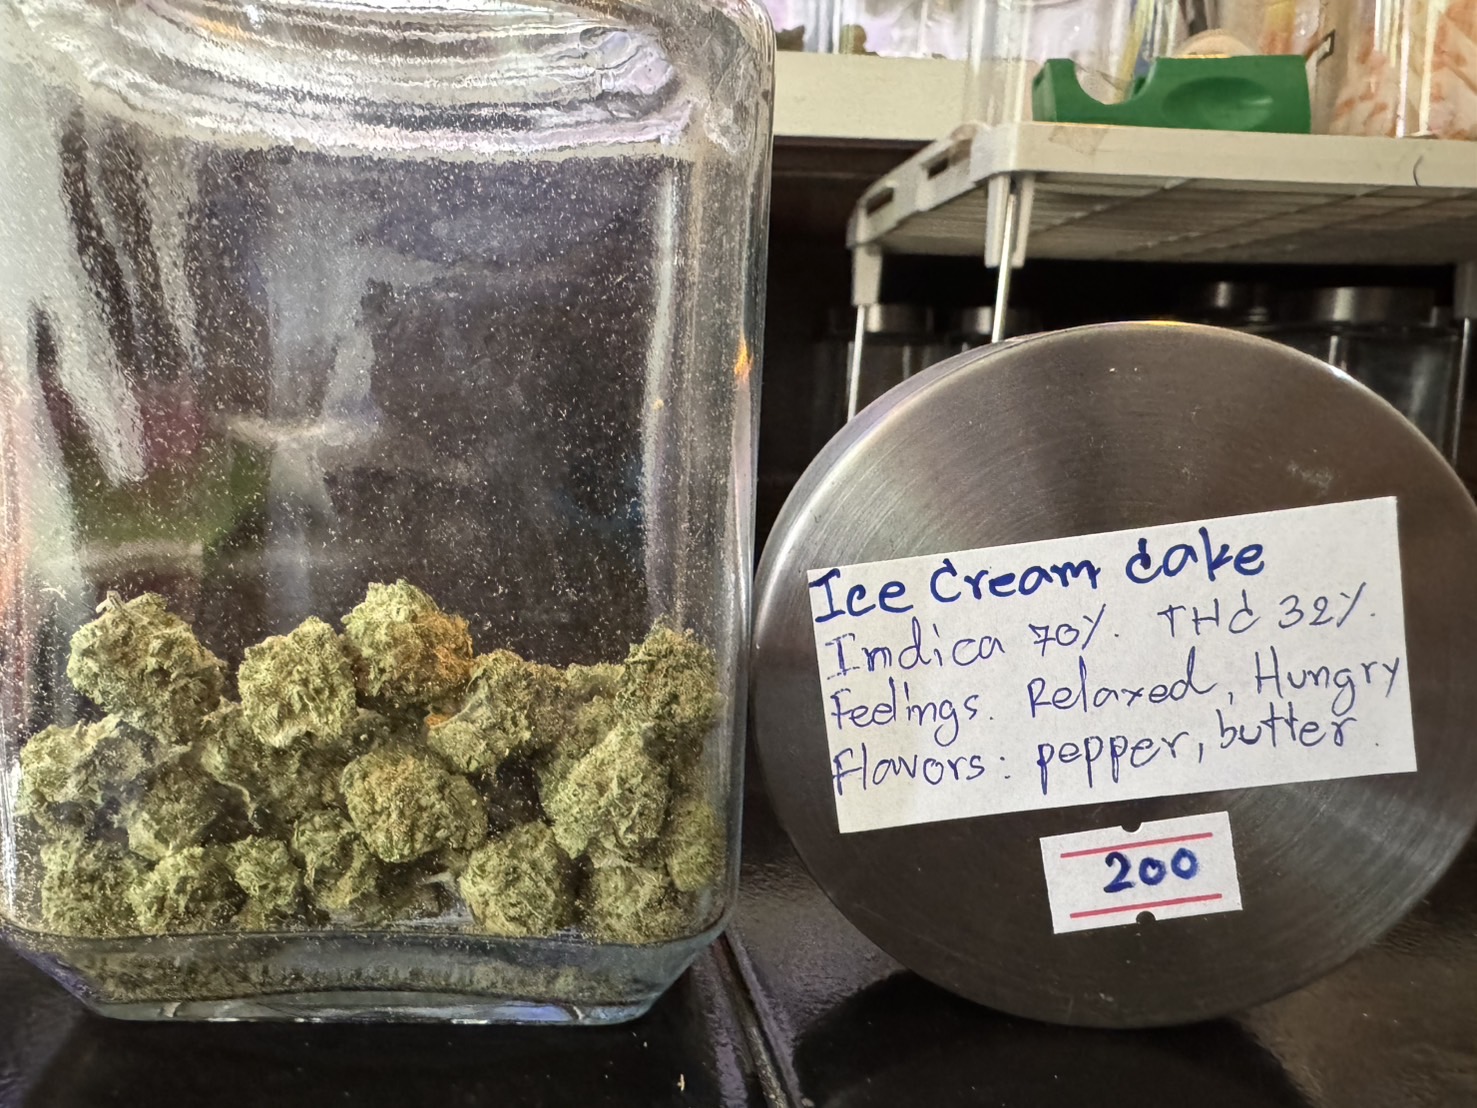 Ice Cream Cake
Indica 70%. THC 32%.
Feelings. Relaxed, Hungry
Flavors: pepper, butter.
200